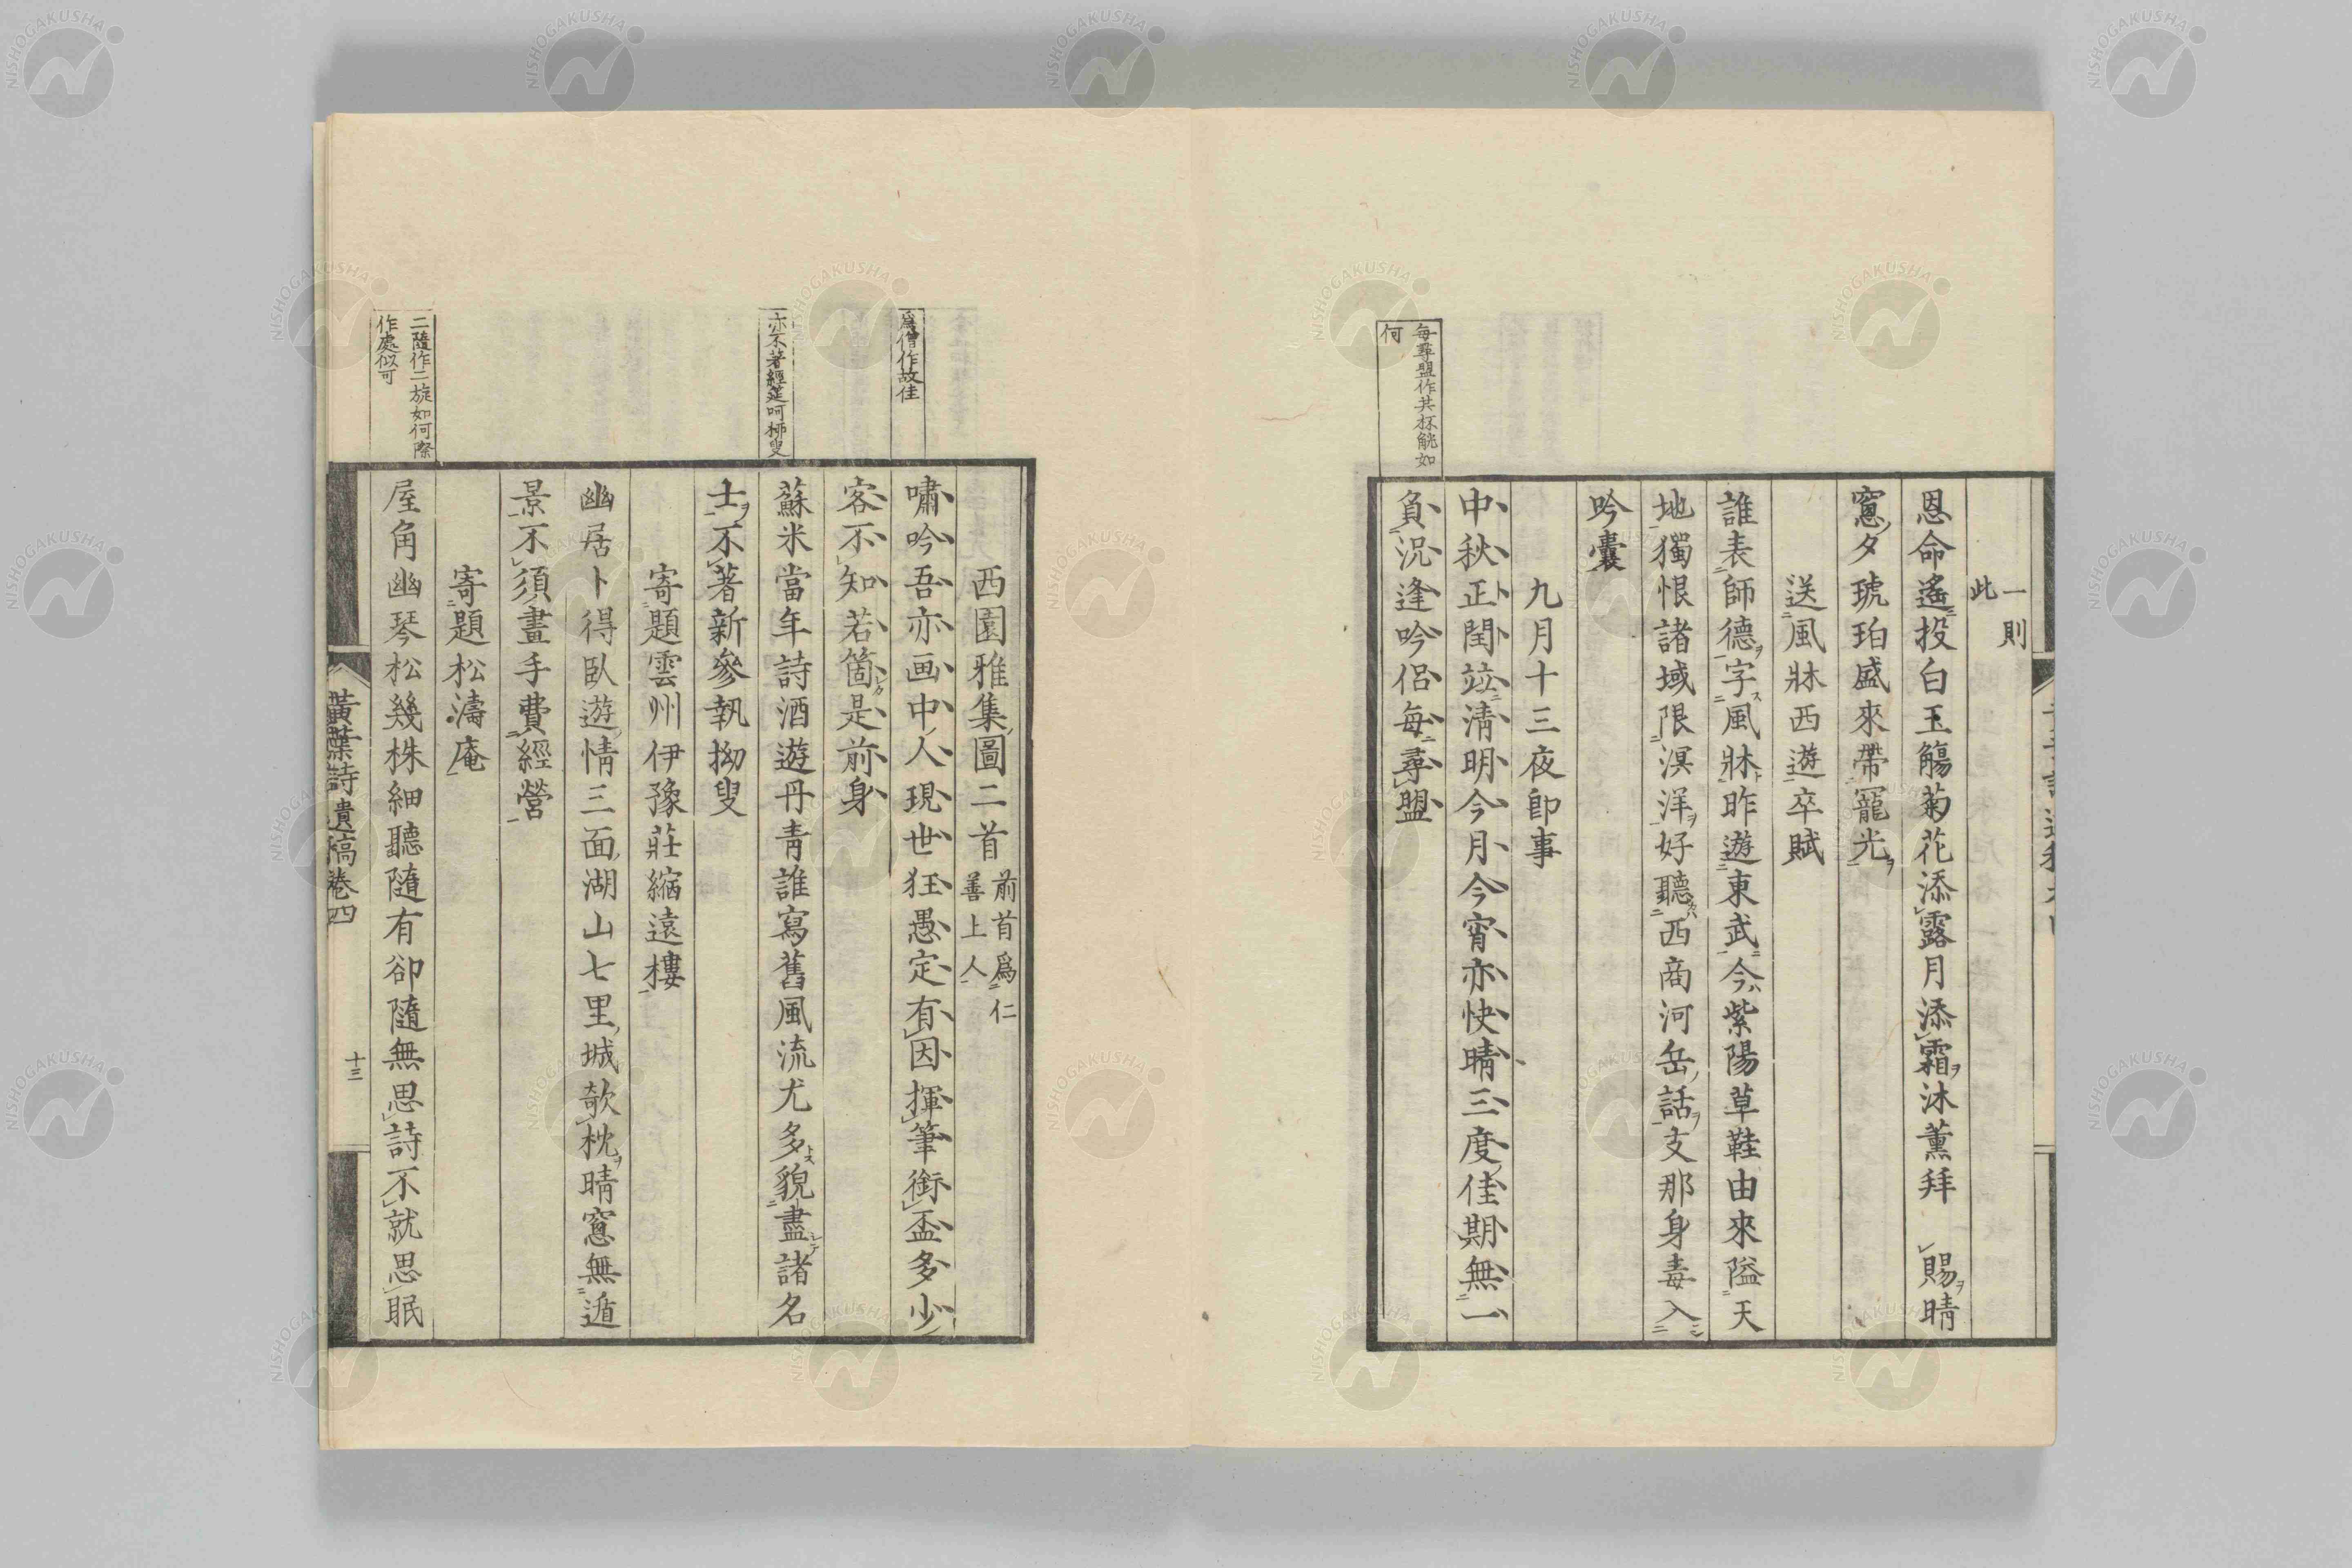 一則
此
恩命遙投白玉觴菊花添露月添霜沐薰拜　賜晴
窻夕琥珀盛來帶寵光
送風牀西遊卒賦
誰表師德字風牀昨遊東武今紫陽草鞋由來隘天
地獨恨諸域限溟洋好聽西商河岳話支那身毒入
吟囊
九月十三夜卽事
每尋盟作共杯觥如
何
中秋正閏竝淸明今月今宵亦快晴三度佳期無一
負況逢吟侶每尋盟
西園雅集圖二首
前首爲仁
善上人
爲僧作故佳
嘯吟吾亦画中人現世狂愚定有因揮筆銜盃多少
客不知若箇是前身
亦不著經筵呵柳叟
蘇米當年詩酒遊丹靑誰寫舊風流尤多貌盡諸名
士不著新參執拗叟
寄題雲州伊豫莊縮遠樓
幽居卜得臥遊情三面湖山七里城欹枕晴窻無遁
景不須畫手費經營
寄題松濤庵
二隨作二旋如何際
作處似可
屋角幽琴松幾株細聽隨有卻隨無思詩不就思眠
黃葉詩遺稿卷四
十三
NISHOGAKUSHA